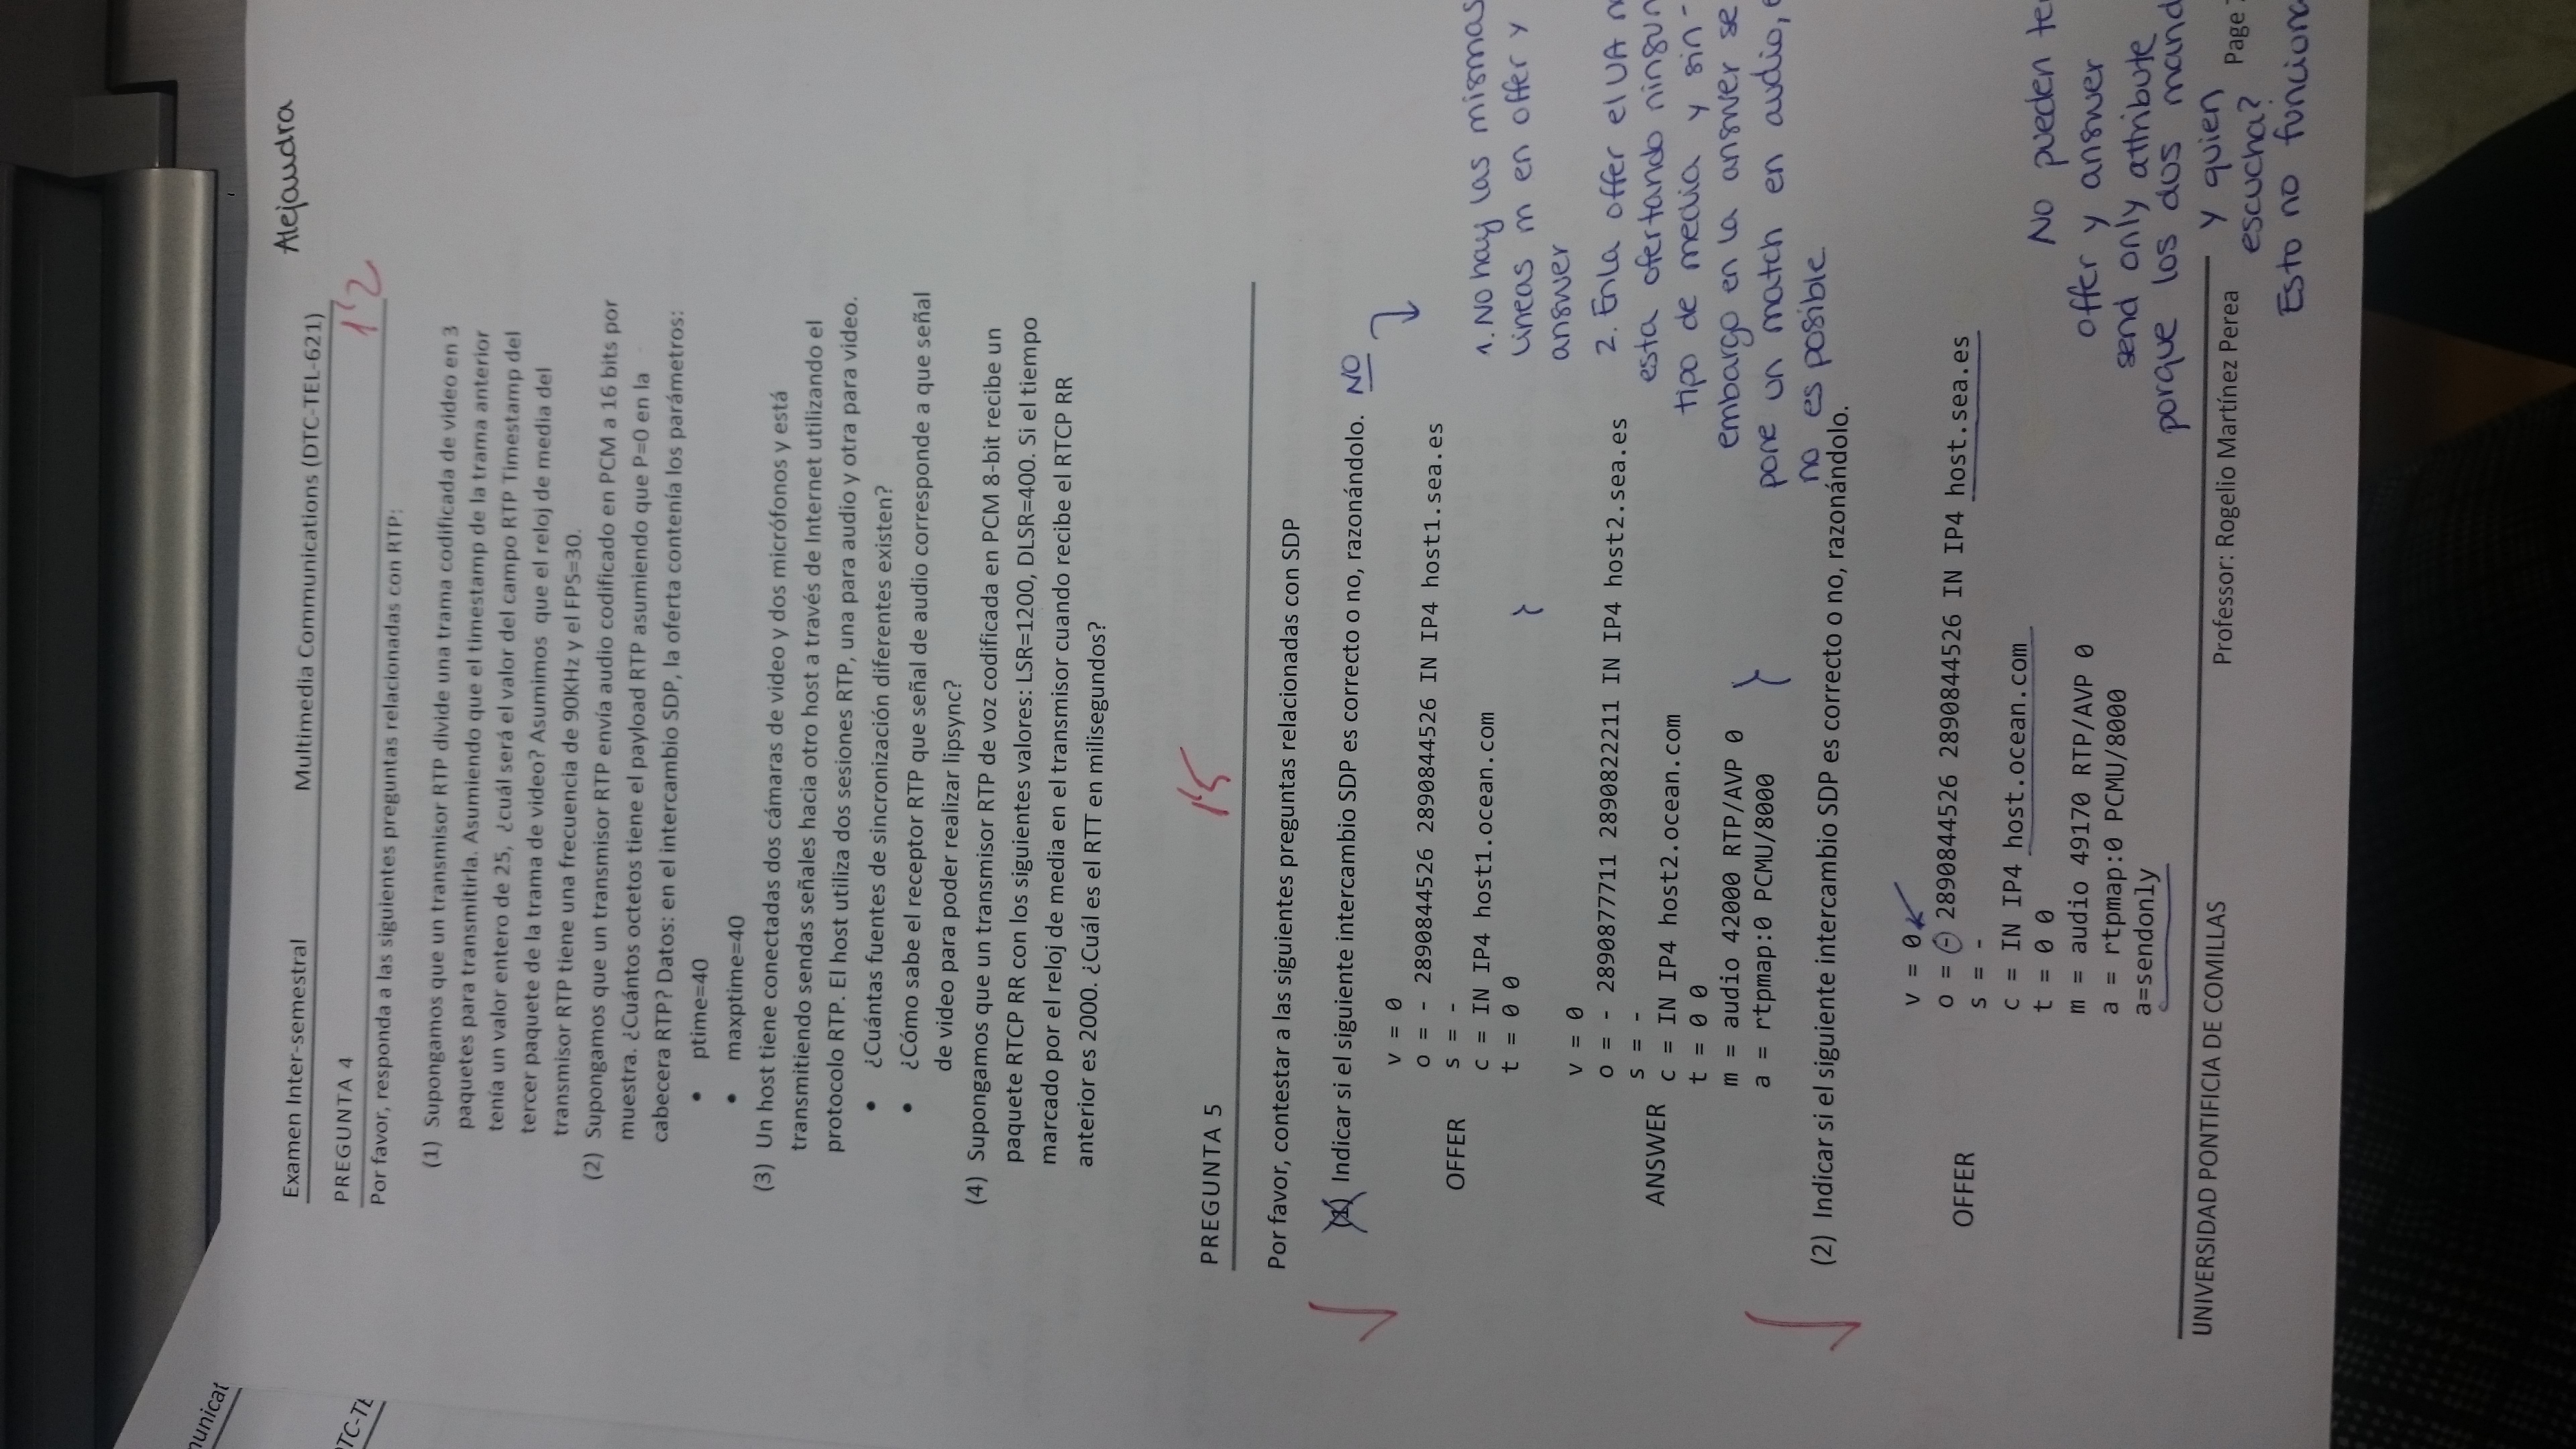 municat
TC-TE
Examen Inter-semestral
Multimedia Communications (DTC-TEL-621)
Alejandra
PREGUNTA 4
1'2
Por favor, responda a las siguientes preguntas relacionadas con RTP:
(1) Supongamos que un transmisor RTP divide una trama codificada de video en 3
paquetes para transmitirla. Asumiendo que el timestamp de la trama anterior
tenía un valor entero de 25, ¿cuál será el valor del campo RTP Timestamp del
tercer paquete de la trama de video? Asumimos que el reloj de media del
transmisor RTP tiene una frecuencia de 90KHz y el FPS=30.
(2) Supongamos que un transmisor RTP envía audio codificado en PCM a 16 bits por
muestra. ¿Cuántos octetos tiene el payload RTP asumiendo que P=0 en la
cabecera RTP? Datos: en el intercambio SDP, la oferta contenía los parámetros:
• ptime=40
• maxptime=40
(3) Un host tiene conectadas dos cámaras de video y dos micrófonos y está
transmitiendo sendas señales hacia otro host a través de Internet utilizando el
protocolo RTP. El host utiliza dos sesiones RTP, una para audio y otra para video.
• ¿Cuántas fuentes de sincronización diferentes existen?
• ¿Cómo sabe el receptor RTP que señal de audio corresponde a que señal
de video para poder realizar lipsync?
(4) Supongamos que un transmisor RTP de voz codificada en PCM 8-bit recibe un
paquete RTCP RR con los siguientes valores: LSR=1200, DLSR=400. Si el tiempo
marcado por el reloj de media en el transmisor cuando recibe el RTCP RR
anterior es 2000. ¿Cuál es el RTT en milisegundos?
PREGUNTA 5
1'5
Por favor, contestar a las siguientes preguntas relacionadas con SDP
(1) Indicar si el siguiente intercambio SDP es correcto o no, razonándolo. NO
OFFER
v = 0
o = - 2890844526 2890844526 IN IP4 host1.sea.es
s = -
c = IN IP4 host1.ocean.com
t = 0 0
ANSWER
v = 0
o = - 2890877711 2890822211 IN IP4 host2.sea.es
s = -
c = IN IP4 host2.ocean.com
t = 0 0
m = audio 42000 RTP/AVP 0
a = rtpmap:0 PCMU/8000
1. No hay las mismas
líneas m en offer y
answer
2. En la offer el UA n
esta ofertando ningun
tipo de media y sin-
embargo en la answer se
pone un match en audio, e
no es posible
(2) Indicar si el siguiente intercambio SDP es correcto o no, razonándolo.
OFFER
v = 0
o = - 2890844526 2890844526 IN IP4 host.sea.es
s = -
c = IN IP4 host.ocean.com
t = 0 0
m = audio 49170 RTP/AVP 0
a = rtpmap:0 PCMU/8000
a=sendonly
No pueden te
offer y answer
send only attribute
porque los dos mand
y quien
escucha?
Esto no funciona
UNIVERSIDAD PONTIFICIA DE COMILLAS
Professor: Rogelio Martínez Perea
Page